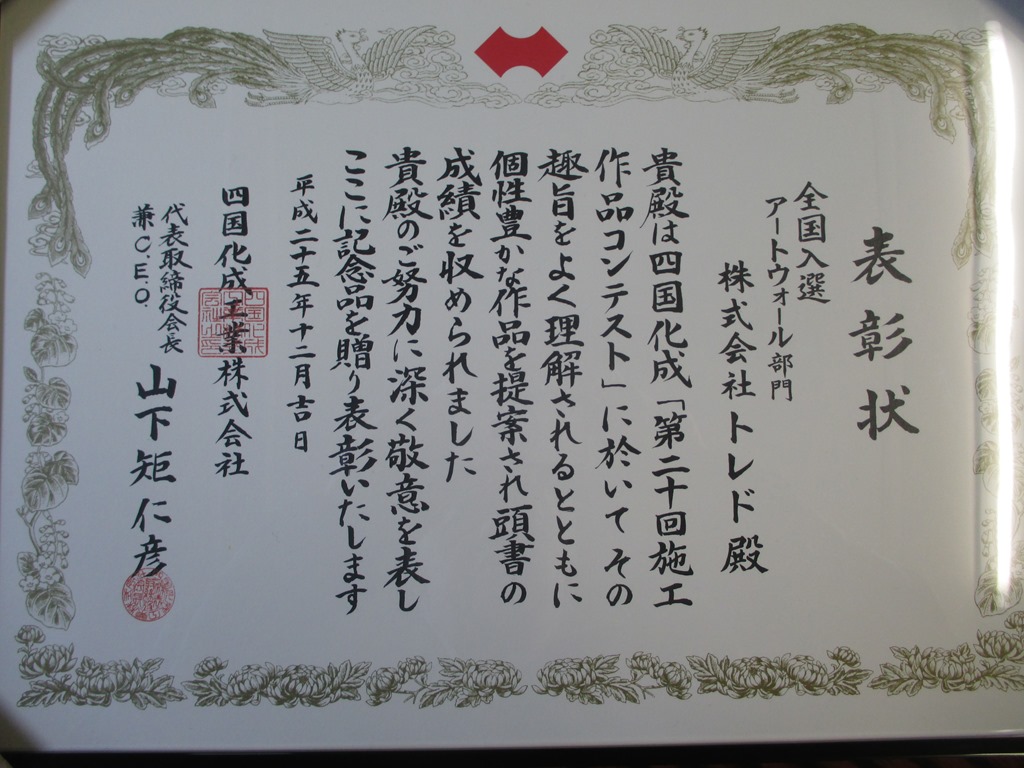 表彰状
全国入選
アートウォール部門
株式会社トレド殿
貴殿は四国化成「第二十回施工
作品コンテスト」に於いてその
趣旨をよく理解されるとともに
個性豊かな作品を提案され頭書の
成績を収められました
貴殿のご努力に深く敬意を表し
ここに記念品を贈り表彰いたします
平成二十五年十二月吉日
四国化成工業株式会社
代表取締役会長
兼C.E.O.
山下矩仁彦